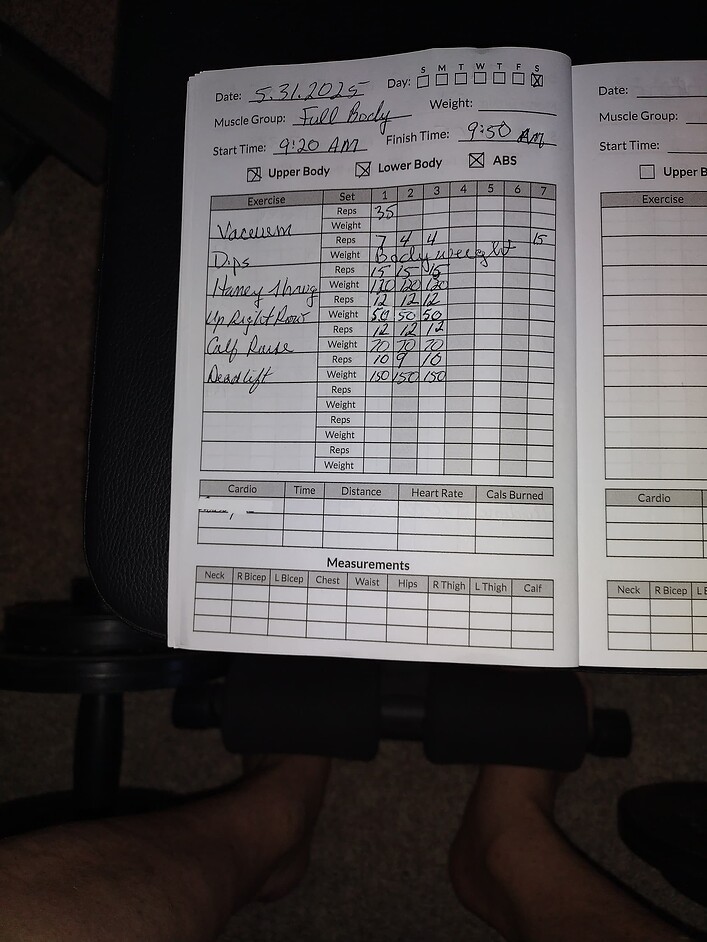 S M T W T F S
Date: 5.31.2025 Day:
Muscle Group: Full Body Weight:
Start Time: 9:20 AM Finish Time: 9:50 AM
Upper Body Lower Body ABS
Exercise Set 1 2 3 4 5 6 7
Reps 35
Vacuum Weight
Reps 7 4 4 15
Dips Weight Bodyweight
Reps 15 15 15
Haney Shrug Weight 120 120 120
Reps 12 12 12
Up Right Row Weight 50 50 50
Reps 12 12 12
Calf Raise Weight 70 70 70
Reps 10 9 10
Deadlift Weight 150 150 150
Reps
Weight
Reps
Weight
Reps
Weight
Cardio Time Distance Heart Rate Cals Burned
Measurements
Neck R Bicep L Bicep Chest Waist Hips R Thigh L Thigh Calf
Date:
Muscle Group:
Start Time:
Upper B
Exercise
Cardio
Neck R Bicep L B